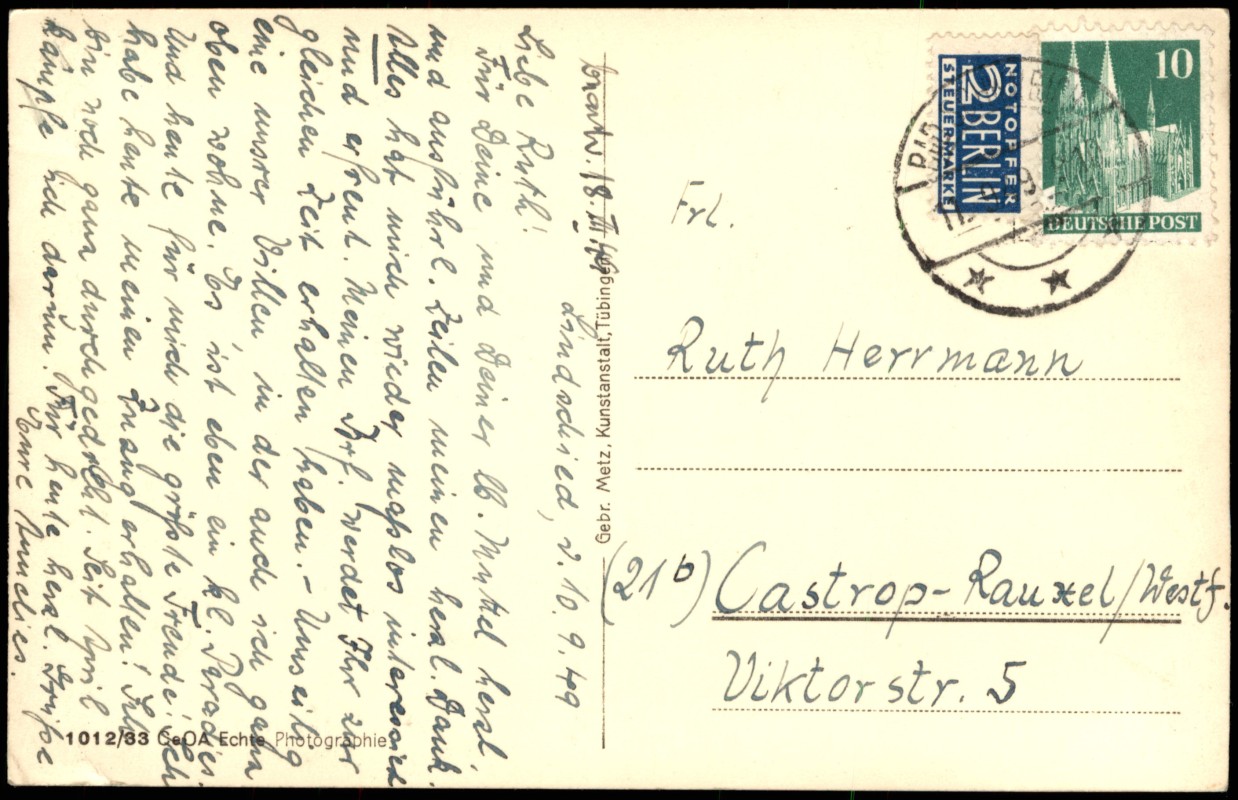 Lindschied, d. 10. 9. 49
Liebe Ruth!
Für Deine und Deiner lb. Mutti herzl.
und ausführl. Zeilen meinen herzl. Dank.
Alles hat mich wieder maßlos interessiert
und erfreut. Meinen Brf. werdet Ihr zur
gleichen Zeit erhalten haben. – Umseitig
eine unsrer Villen in der auch ich ganz
oben wohne. Es ist eben ein kl. Paradies.
Und heute für mich die größte Freude: Ich
habe heute meinen Zuzug erhalten!
bin noch ganz durchgedreht. Seit April
kämpfe ich darum. Für heute herzl. Grüße
Eure Annelies.
Gebr. Metz, Kunstanstalt, Tübingen
1012/33 GeOA Echte Photographie
NOTOPFER
2 BERLIN
STEUERMARKE
10
DEUTSCHE POST
Frl.
Ruth Herrmann
(21b) Castrop-Rauxel/Westf.
Viktorstr. 5